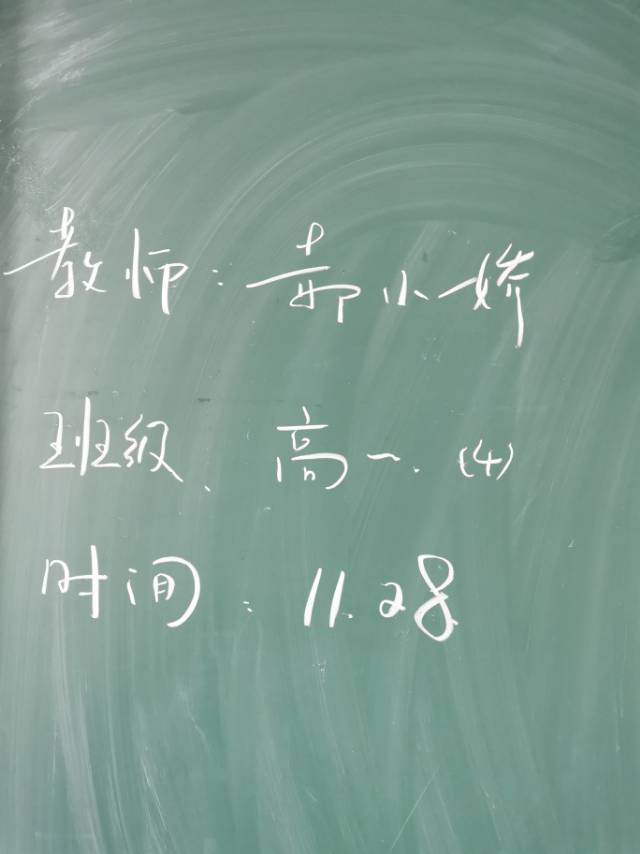 教师:郝小娇
班级、高一.(4)
时间:11.28